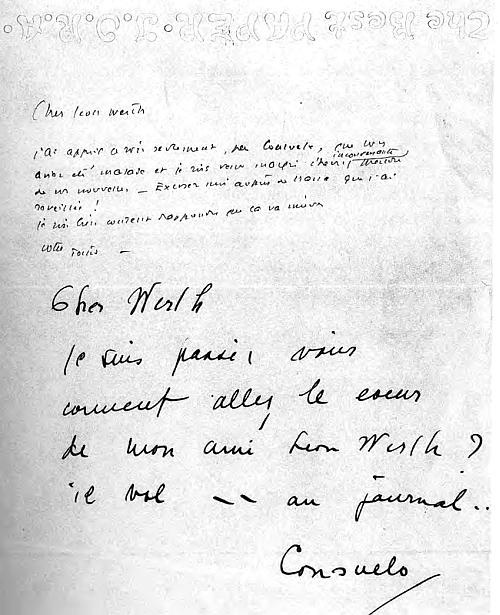 The Best PAPER
Cher Léon Werth
j'ai appris ce soir seulement, par Consuelo, que vous
aviez été malade et je suis venu malgré l'heure inconvenante
de vos nouvelles — Excusez moi auprès de que j'ai
réveillée !
je suis bien content d'apprendre que ça va mieux
votre Tonio —
Cher Werth
Je suis passée, vous
comment allez le coeur
de mon ami Leon Werth ?
il vol -- au journal..
Consuelo